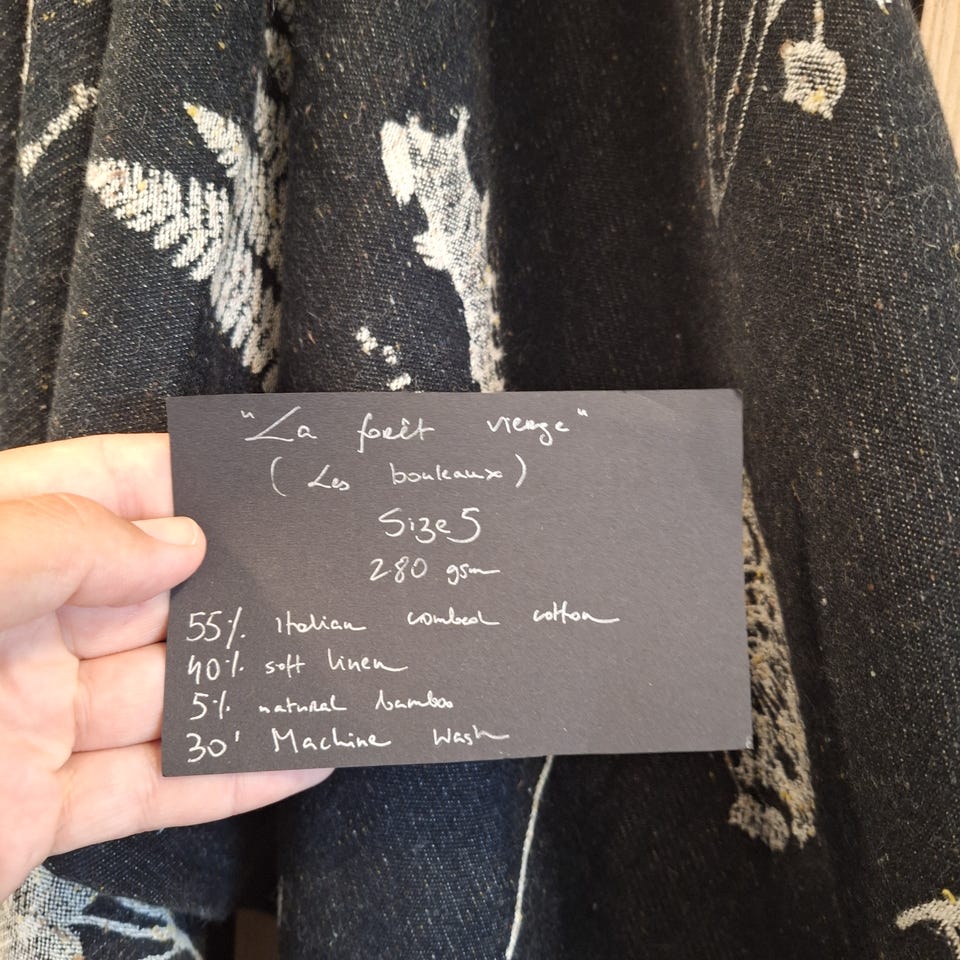 "La forêt vierge"
(Les bouleaux)
Size 5
280 gsm
55% italian combed cotton
40% soft linen
5% natural bamboo
30' Machine wash